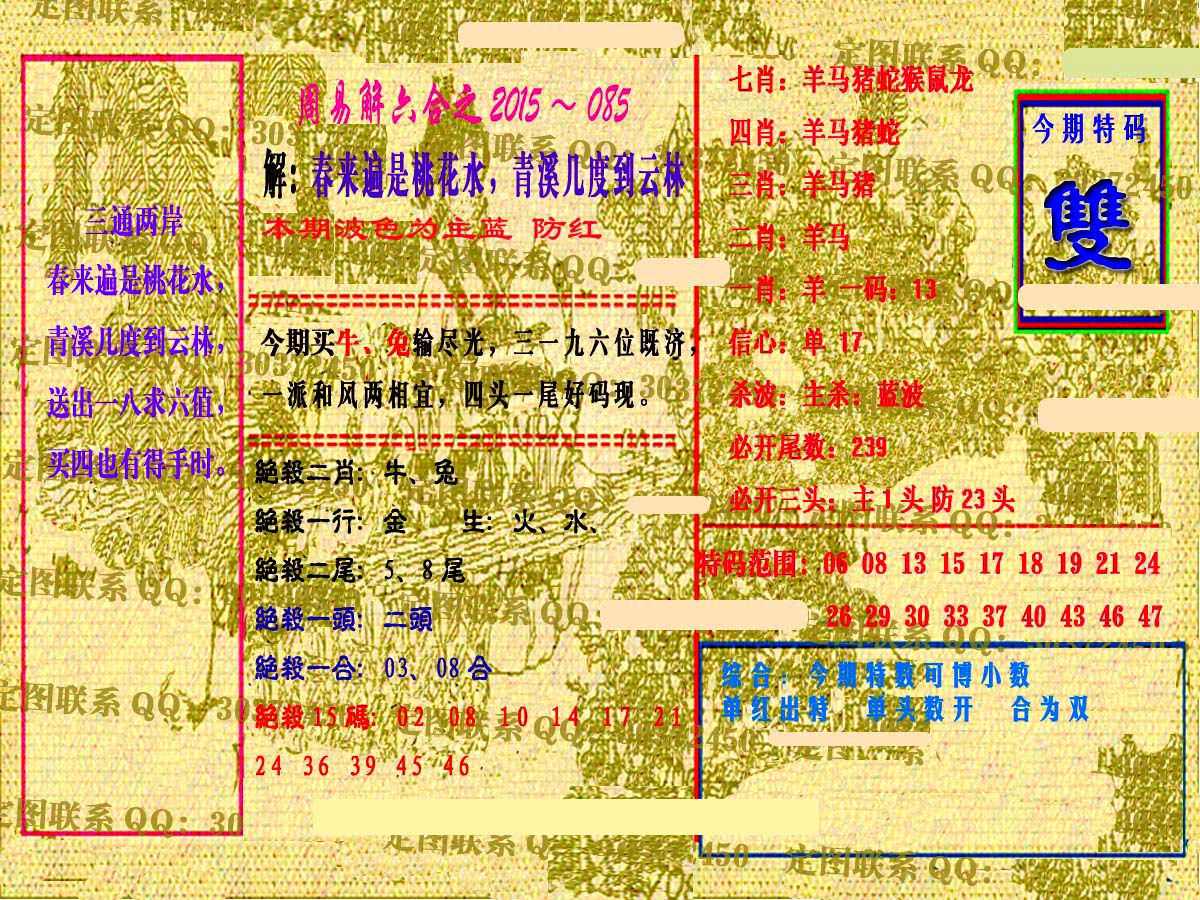 三通两岸
春来遍是桃花水，
青溪几度到云林，
送出一八求六值，
买四也有得手时。
周易解六合之2015～085
解：春来遍是桃花水，青溪几度到云林
本期波色为主蓝 防红
今期买牛、兔输尽光，三一九六位既济，
一派和风两相宜，四头一尾好码现。
絕殺二肖：牛、兔
絕殺一行：金 生：火、水、
絕殺二尾：5、8尾
絕殺一頭：二頭
絕殺一合：03、08合
絕殺15碼：02 08 10 14 17 21
24 36 39 45 46
七肖：羊马猪蛇猴鼠龙
四肖：羊马猪蛇
三肖：羊马猪
二肖：羊马
一肖：羊 一码：13
信心：单 17
杀波：主杀：蓝波
必开尾数：239
必开三头：主1头防23头
今期特码
雙
特码范围：06 08 13 15 17 18 19 21 24
26 29 30 33 37 40 43 46 47
综合：今期特数可博小数
单红出特 单头数开 合为双
定图联系 QQ：